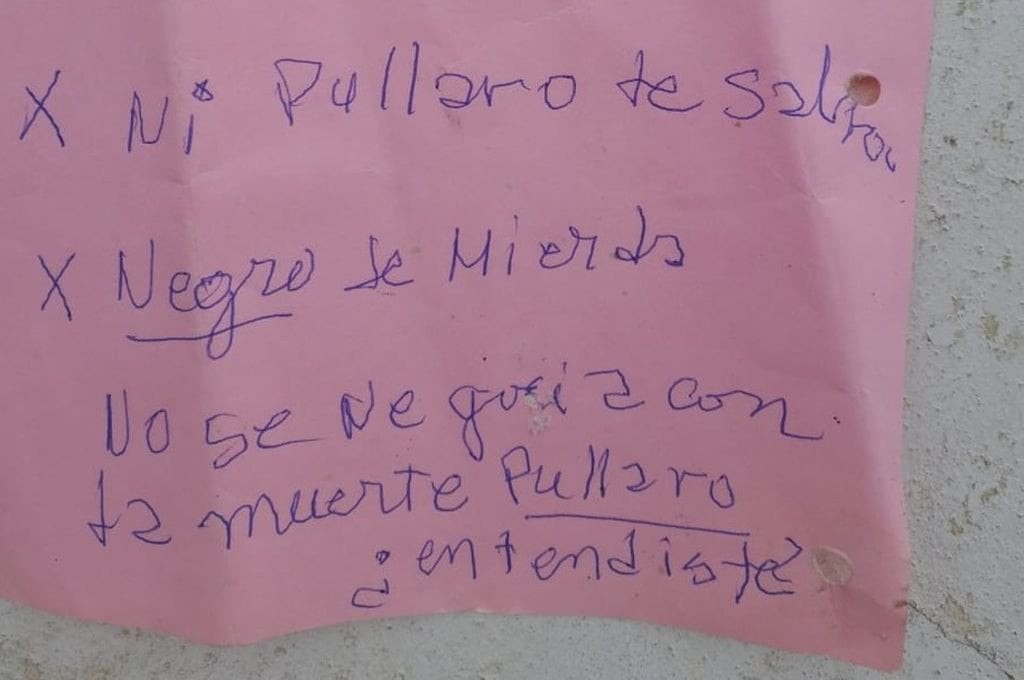 X Ni Pullaro te salva
X Negro de Mierda
No se Negocia con
la muerte Pullaro
¿entendiste?